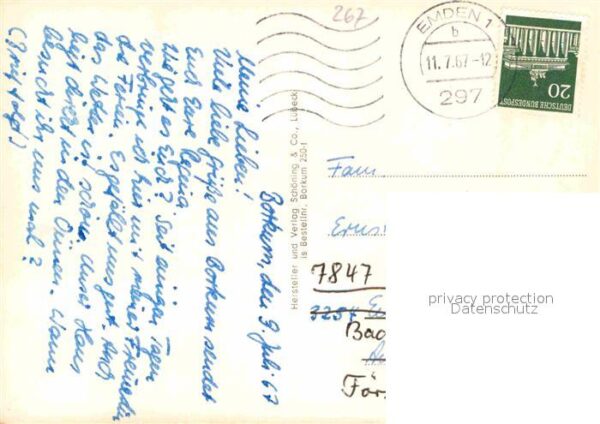 267
EMDEN 1
b
11.7.67-12
297
20
DEUTSCHE BUNDESPOST
Borkum, den 9. Juli 67
Meine Lieben!
Viele liebe Grüße aus Borkum sendet
Euch Eure Regina.
Wie geht es Euch? Seit einigen Tagen
verbringe ich hier mit meiner Freundin
die Ferien. Es gefällt uns gut. Auch
das Wetter ist schön. Unser Haus
liegt direkt in den Dünen. Wann
besucht ihr uns mal?
(Brief folgt)
Hersteller und Verlag Schöning & Co., Lübeck
is Bestellnr. Borkum 250-1
Fam.
7847
3257
Bad
För
privacy protection
Datenschutz